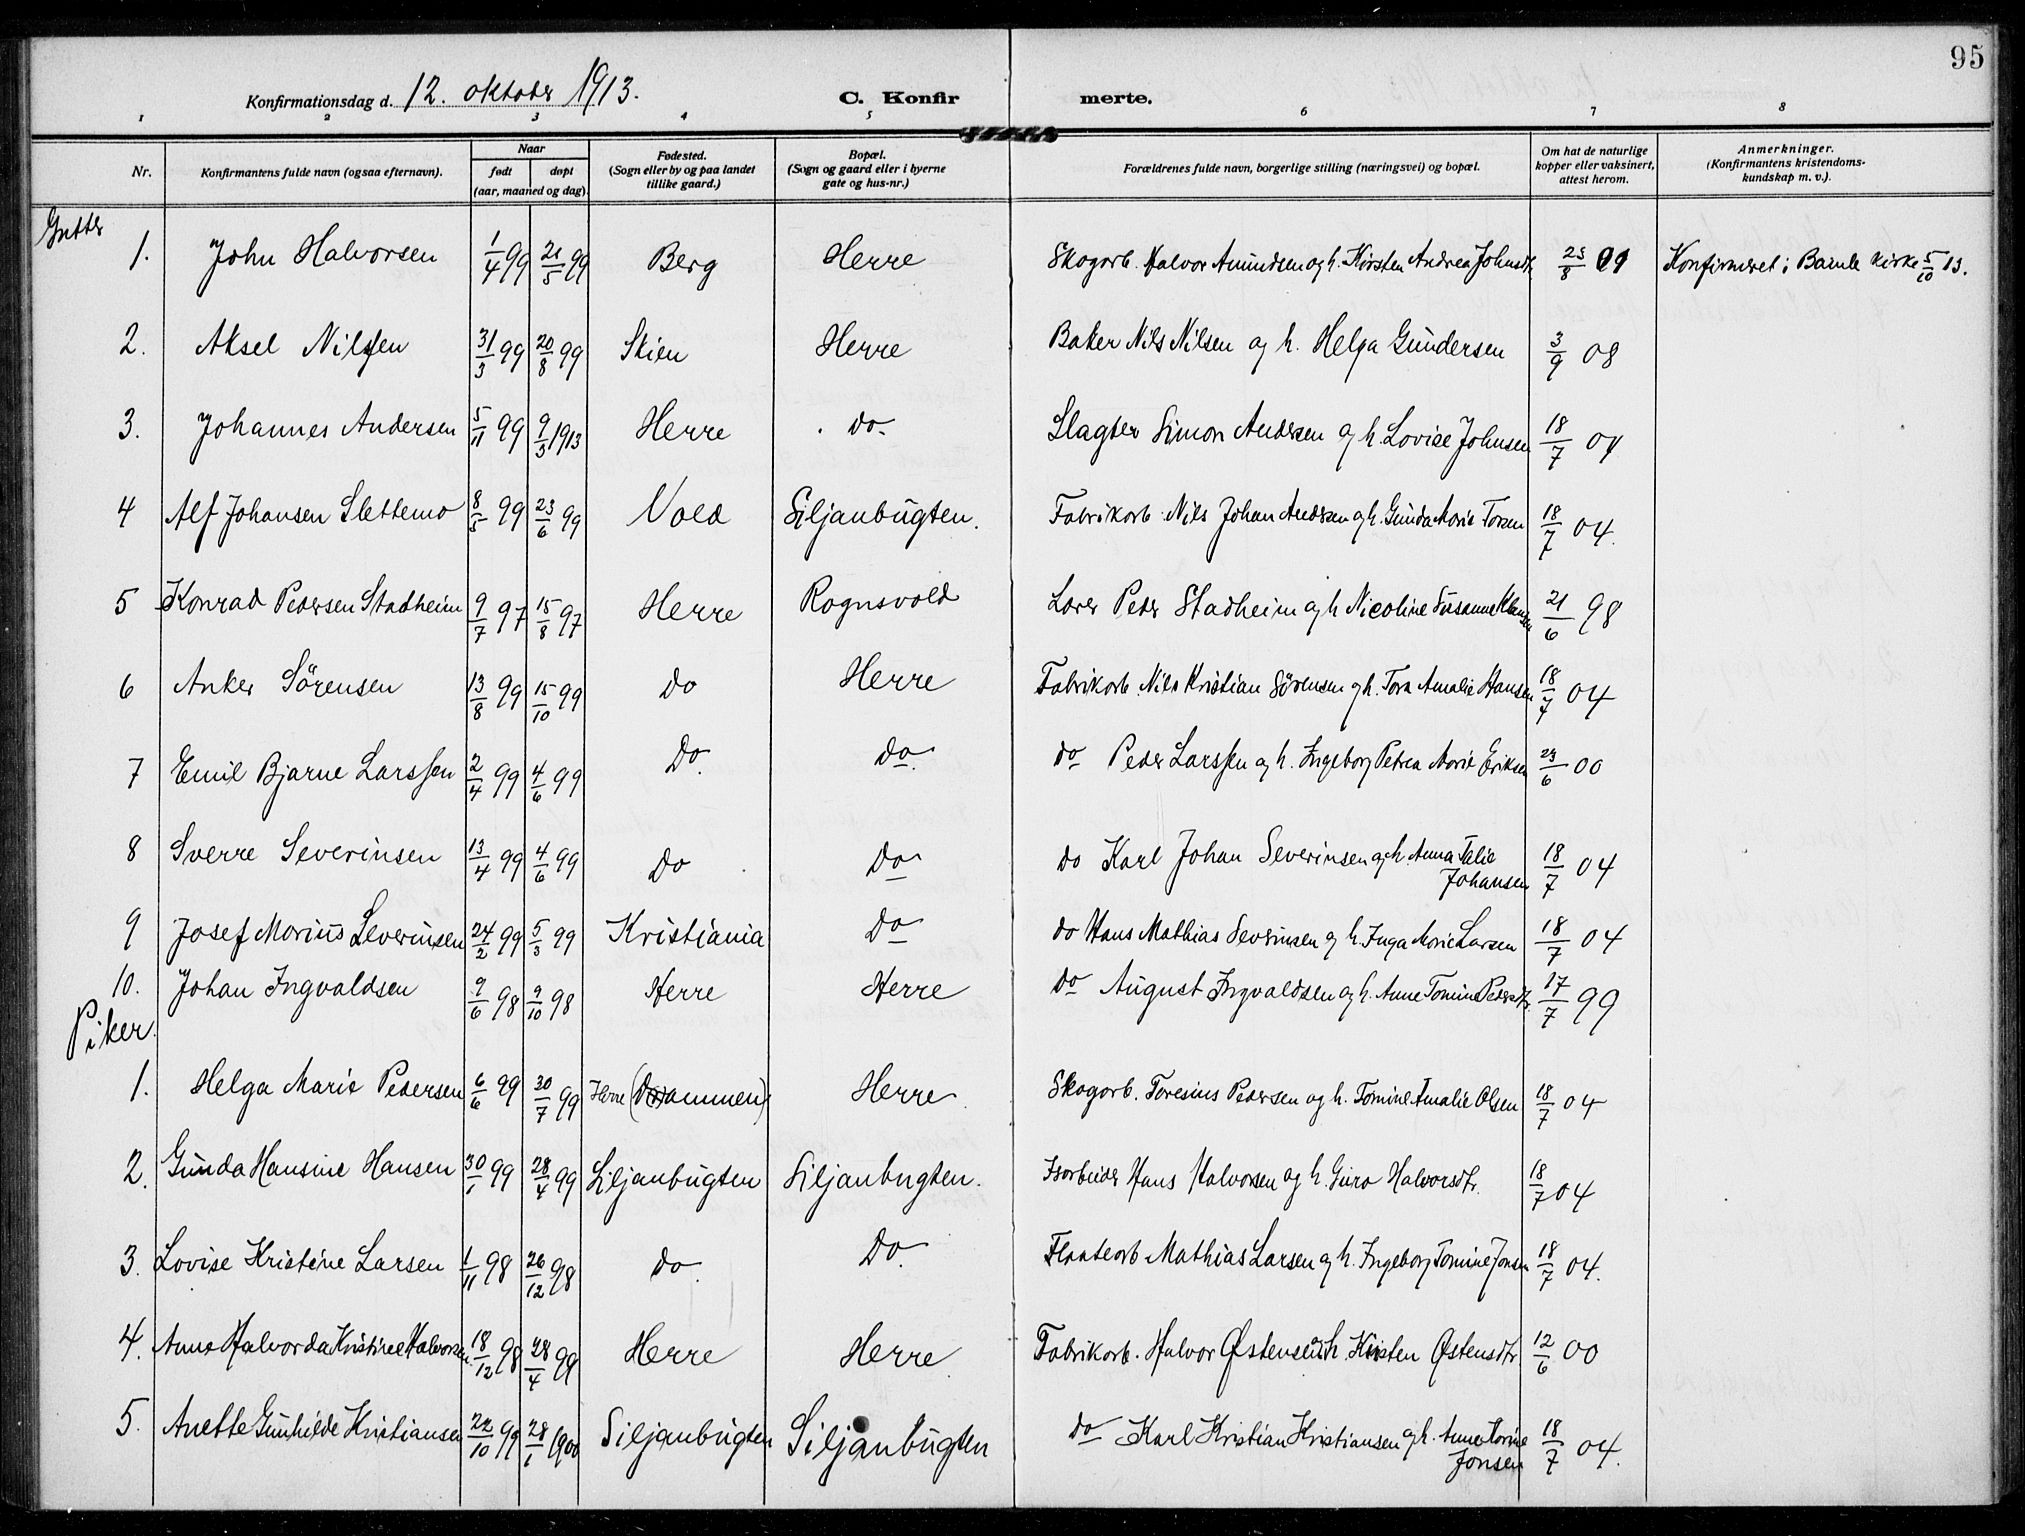 95
Konfirmationsdag d. 12. oktober 1913. C. Konfir merte.
1 2 3 4 5 6 7 8
Nr. Konfirmantens fulde navn (ogsaa efternavn). Naar født døpt (aar, maaned og dag). Fødested. (Sogn eller by og paa landet tillike gaard.) Bopæl. (Sogn og gaard eller i byerne gate og hus-nr.) Forældrenes fulde navn, borgerlige stilling (næringsvei) og bopæl. Om hat de naturlige kopper eller vaksinert, attest herom. Anmerkninger. (Konfirmantens kristendoms-kundskap m. v.).
Gutter
1. John Halvorsen 1/4 99 21/5 99 Berg Herre Skogarb. Halvor Amundsen og h. Kirsten Andrea Johnsdtr 25/8 Konfirmeret i Bamle Kirke 5/10 13.
2. Aksel Nilsen 31/3 99 20/8 99 Skien Herre Baker Nils Nilsen og h. Helga Gundersen 3/9 08
3. Johannes Andersen 5/11 99 9/3 1913 Herre do Slagter Simon Andersen og h. Lovise Johnsen 18/7 04
4 Alf Johansen Slettemo 8/5 99 23/6 99 Vold Siljanbugten. Fabrikarb. Nils Johan Andersen og h. Gunda Marie Torsen 18/7 04.
5 Konrad Pedersen Stadheim 9/7 97 15/8 97 Herre Rognsvold Lærer Peder Stadheim og h Nicoline Susanne Klausen 21/6 98
6 Anker Sörensen 13/8 99 15/10 99 do Herre Fabrikarb. Nils Kristian Sörensen og h. Tora Amalie Hansen 18/7 04
7 Emil Bjarne Larssen 2/4 99 4/6 99 Do do do Peder Larssen og h. Ingeborg Petrea Marie Eriksen 24/6 00
8 Sverre Severinsen 13/4 99 4/6 99 Do Do do Karl Johan Severinsen og h. Anna Talie Johansen 18/7 04
9 Josef Marius Severinsen 24/2 99 5/3 99 Kristiania Do do Hans Mathias Severinsen og h. Inga Marie Larsen 18/7 04
10. Johan Ingvaldsen 9/6 98 9/10 98 Herre Herre do August Ingvaldsen og h. Anne Tomine Pedersdtr. 17/7 99
Piker.
1. Helga Marie Pedersen 6/6 99 30/7 99 Herre Herre Skogarb. Toresius Pedersen og h. Tomine Amalie Olsen 18/7 04
2. Gunda Hansine Hansen 30/1 99 28/4 99 Siljanbugten Siljanbugten. Isarbeider Hans Halvorsen og h. Guro Halvorsdtr. 18/7 04
3. Lovise Kristine Larsen 1/11 98 26/12 98 do Do Flaatearb Mathias Larsen og h. Ingeborg Tomine Jonsen 18/7 04.
4. Anna Halvorda Kristine Halvorsen 18/12 98 28/4 99 Herre Herre Fabrikarb. Halvor Østensen og h. Kirsten Østensdtr 12/6 00
5. Anette Gunhilde Kristiansen 22/10 99 28/1 1900 Siljanbugten Siljanbugten do Karl Kristian Kristiansen og h. Anne Tomine Jonsen 18/7 04.